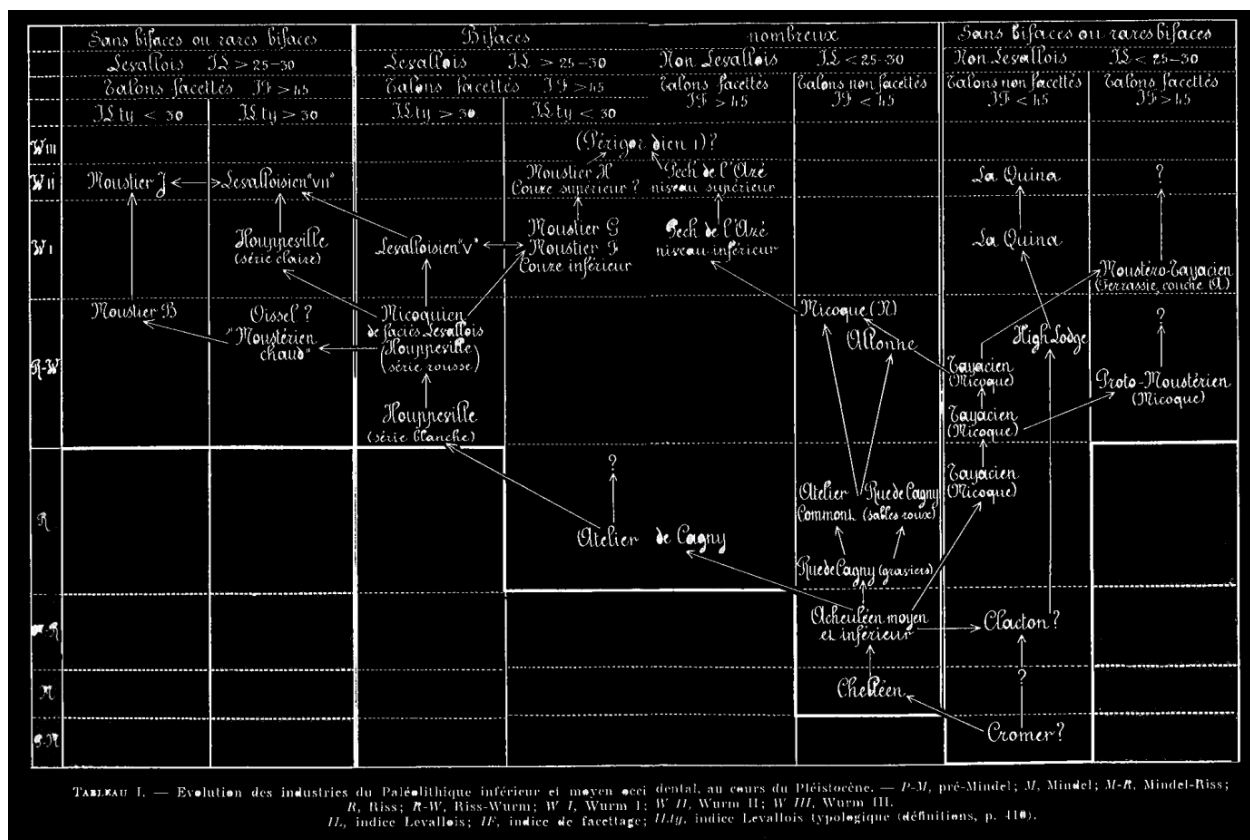 Sans bifaces ou rares bifaces
Bifaces nombreux
Sans bifaces ou rares bifaces
Levallois IL > 25-30
Levallois IL > 25-30
Non Levallois IL < 25-30
Non Levallois IL < 25-30
Talons facettés IF > 45
Talons facettés IF > 45
Talons facettés
IF > 45
Talons non facettés
IF < 45
Talons non facettés
IF < 45
Talons facettés
IF > 45
ILty < 30
ILty > 30
ILty > 30
ILty < 30
W III
(Périgordien I)?
W II
Moustier J
Levalloisien "VII"
Moustier H
Couze supérieur ?
Pech de l'Azé
niveau supérieur
La Quina
?
W I
Houppeville
(série claire)
Levalloisien "V"
Moustier G
Moustier F
Couze inférieur
Pech de l'Azé
niveau inférieur
La Quina
Moustéro-Tayacien
(Ferrassie couche A)
R-W
Moustier B
Oissel ?
"Moustérien
chaud"
Micoquien
de faciès Levallois
(Houppeville
série rousse)
Houppeville
(série blanche)
Micoque (N)
Allonne
High Lodge
Tayacien
(Micoque)
Tayacien
(Micoque)
?
Proto-Moustérien
(Micoque)
R
?
Atelier de Cagny
Atelier
Commont
Rue de Cagny
(sables roux)
Rue de Cagny (graviers)
Tayacien
(Micoque)
M-R
Acheuléen moyen
et inférieur
Clacton ?
M
Chelléen
?
P-M
Cromer ?
TABLEAU I. — Evolution des industries du Paléolithique inférieur et moyen occi dental, au cours du Pléistocène. — P-M, pré-Mindel; M, Mindel; M-R, Mindel-Riss;
R, Riss; R-W, Riss-Wurm; W I, Wurm I; W II, Wurm II; W III, Wurm III.
IL, indice Levallois; IF, indice de facettage; ILty, indice Levallois typologique (définitions, p. 410).